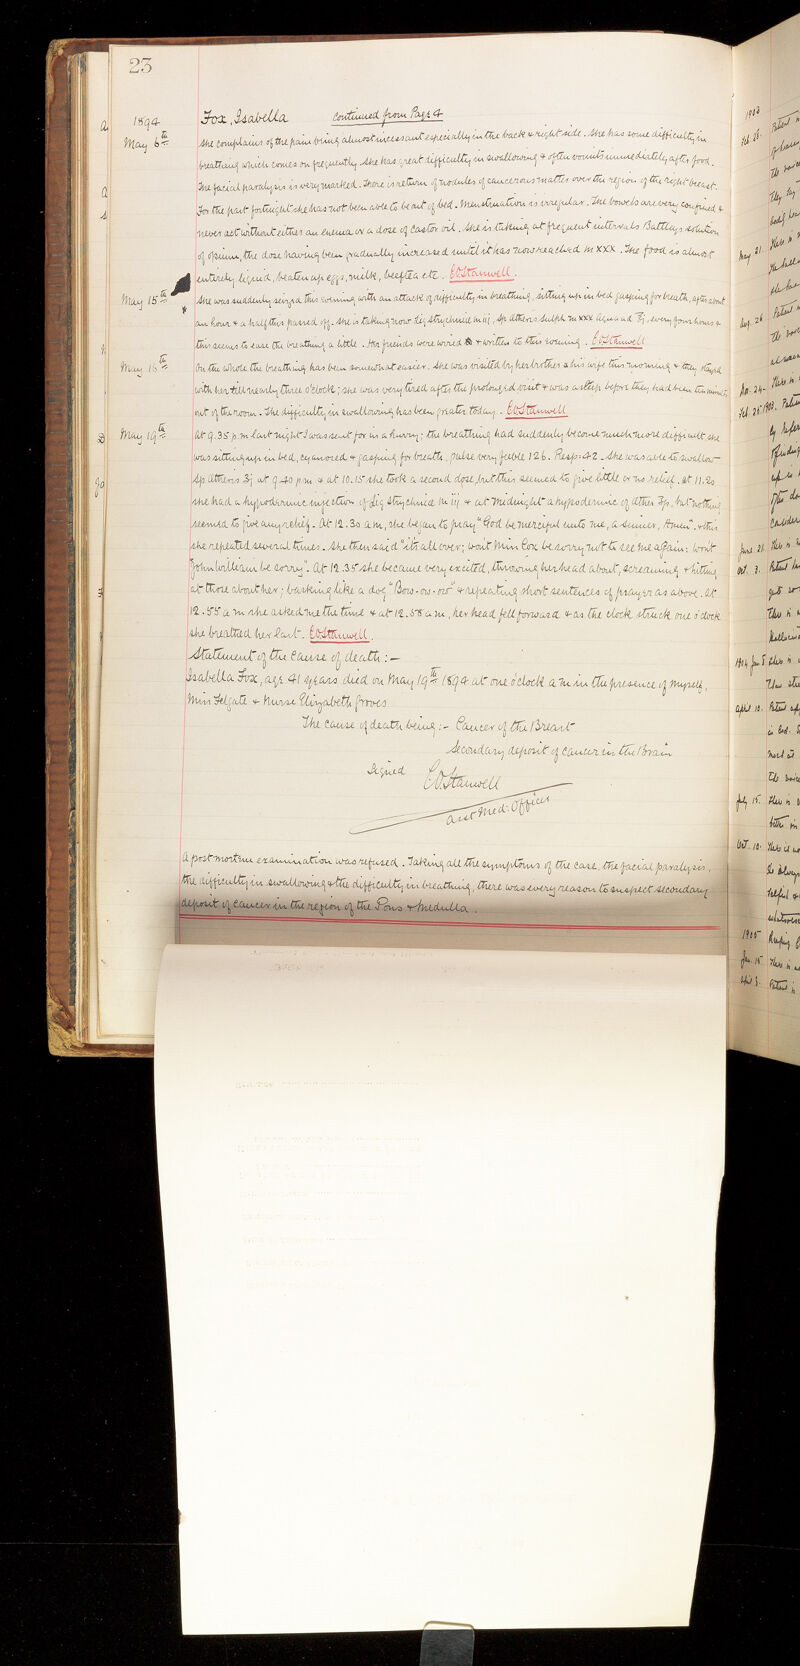 23
1894 Fox, Isabella continued from Page 4
May 6th She complains of the pain being almost incessant especially in the back & right side. She has some difficulty in
breathing which comes on frequently. She has great difficulty in swallowing & often vomits immediately after food.
The facial paralysis is very marked. There is return of nodules of cancerous matter over the region of the right breast.
For the past fortnight she has not been able to be out of bed. Menstruation is irregular. The bowels are very confined &
never act without either an enema or a dose of Castor oil. She is taking at frequent intervals Battleys solution
of opium, the dose having been gradually increased until it has now reached m xxx. The food is almost
entirely liquid, beaten up eggs, milk, beeftea etc. E.O. Stanwell.
May 15th She was suddenly seized this evening with an attack of difficulty in breathing, sitting up in bed gasping for breath, after about
an hour & a half this passed off. She is taking now Liq Strychniae m iij, Sp. Atheris Sulph m xxx Aqua ad ℥j, every four hours &
this seems to ease the breathing a little. Her friends were wired & written to this evening. E.O. Stanwell
May 18th On the whole the breathing has been somewhat easier. She was visited by her brother & his wife this morning & they stayed
with her till nearly three o'clock; she was very tired after the prolonged visit & was asleep before they had been ten minutes
out of the room. The difficulty in swallowing has been greater today. E.O. Stanwell
May 19th At 9.35 p.m last night I was sent for in a hurry; the breathing had suddenly become much more difficult, she
was sitting up in bed, cyanosed & gasping for breath, pulse very feeble 126. Resp: 42. She was able to swallow
Sp Atheris ʒj at 9.40 pm & at 10.15 she took a second dose, but this seemed to give little or no relief. At 11.20
she had a hypodermic injection of Liq Strychniae m iij & at midnight a hypodermic of Ether but nothing
seemed to give any relief. At 12.30 am, she began to pray "God be merciful unto me, a sinner, Amen". & this
she repeated several times. She then said "it's all over; won't Miss Cox be sorry not to see me again; won't
John William be sorry". At 12.35 she became very excited, throwing her head about, screaming & hitting
at those about her; barking like a dog "Bow-ow-ow" & repeating short sentences of prayer as above. At
12.55 a m she asked me the time & at 12.58 a m, her head fell forward & as the clock struck one o'clock
she breathed her last. E.O. Stanwell.
Statement of the cause of death:—
Isabella Fox, age 41 years died on May 19th 1894 at one o'clock a m in the presence of myself,
Miss Felgate & Nurse Elizabeth Groves
The cause of death being:— Cancer of the Breast
Secondary deposit of cancer in the Brain
Signed E.O. Stanwell
Asst Med: Officer
A post mortem examination was refused. Taking all the symptoms of the case, the facial paralysis,
the difficulty in swallowing & the difficulty in breathing, there was every reason to suspect secondary
deposit of cancer in the region of the Pons & Medulla.
1903
Feb. 28. Patient
May 21.
Aug. 26 Patient
Nov. 24.
Feb. 25 1903.
June. 21.
Oct. 3. Patient
1904 Jan 5.
April 10. Patient
July 15.
Oct. 10.
1905
Jan. 15
April 3. Patient is